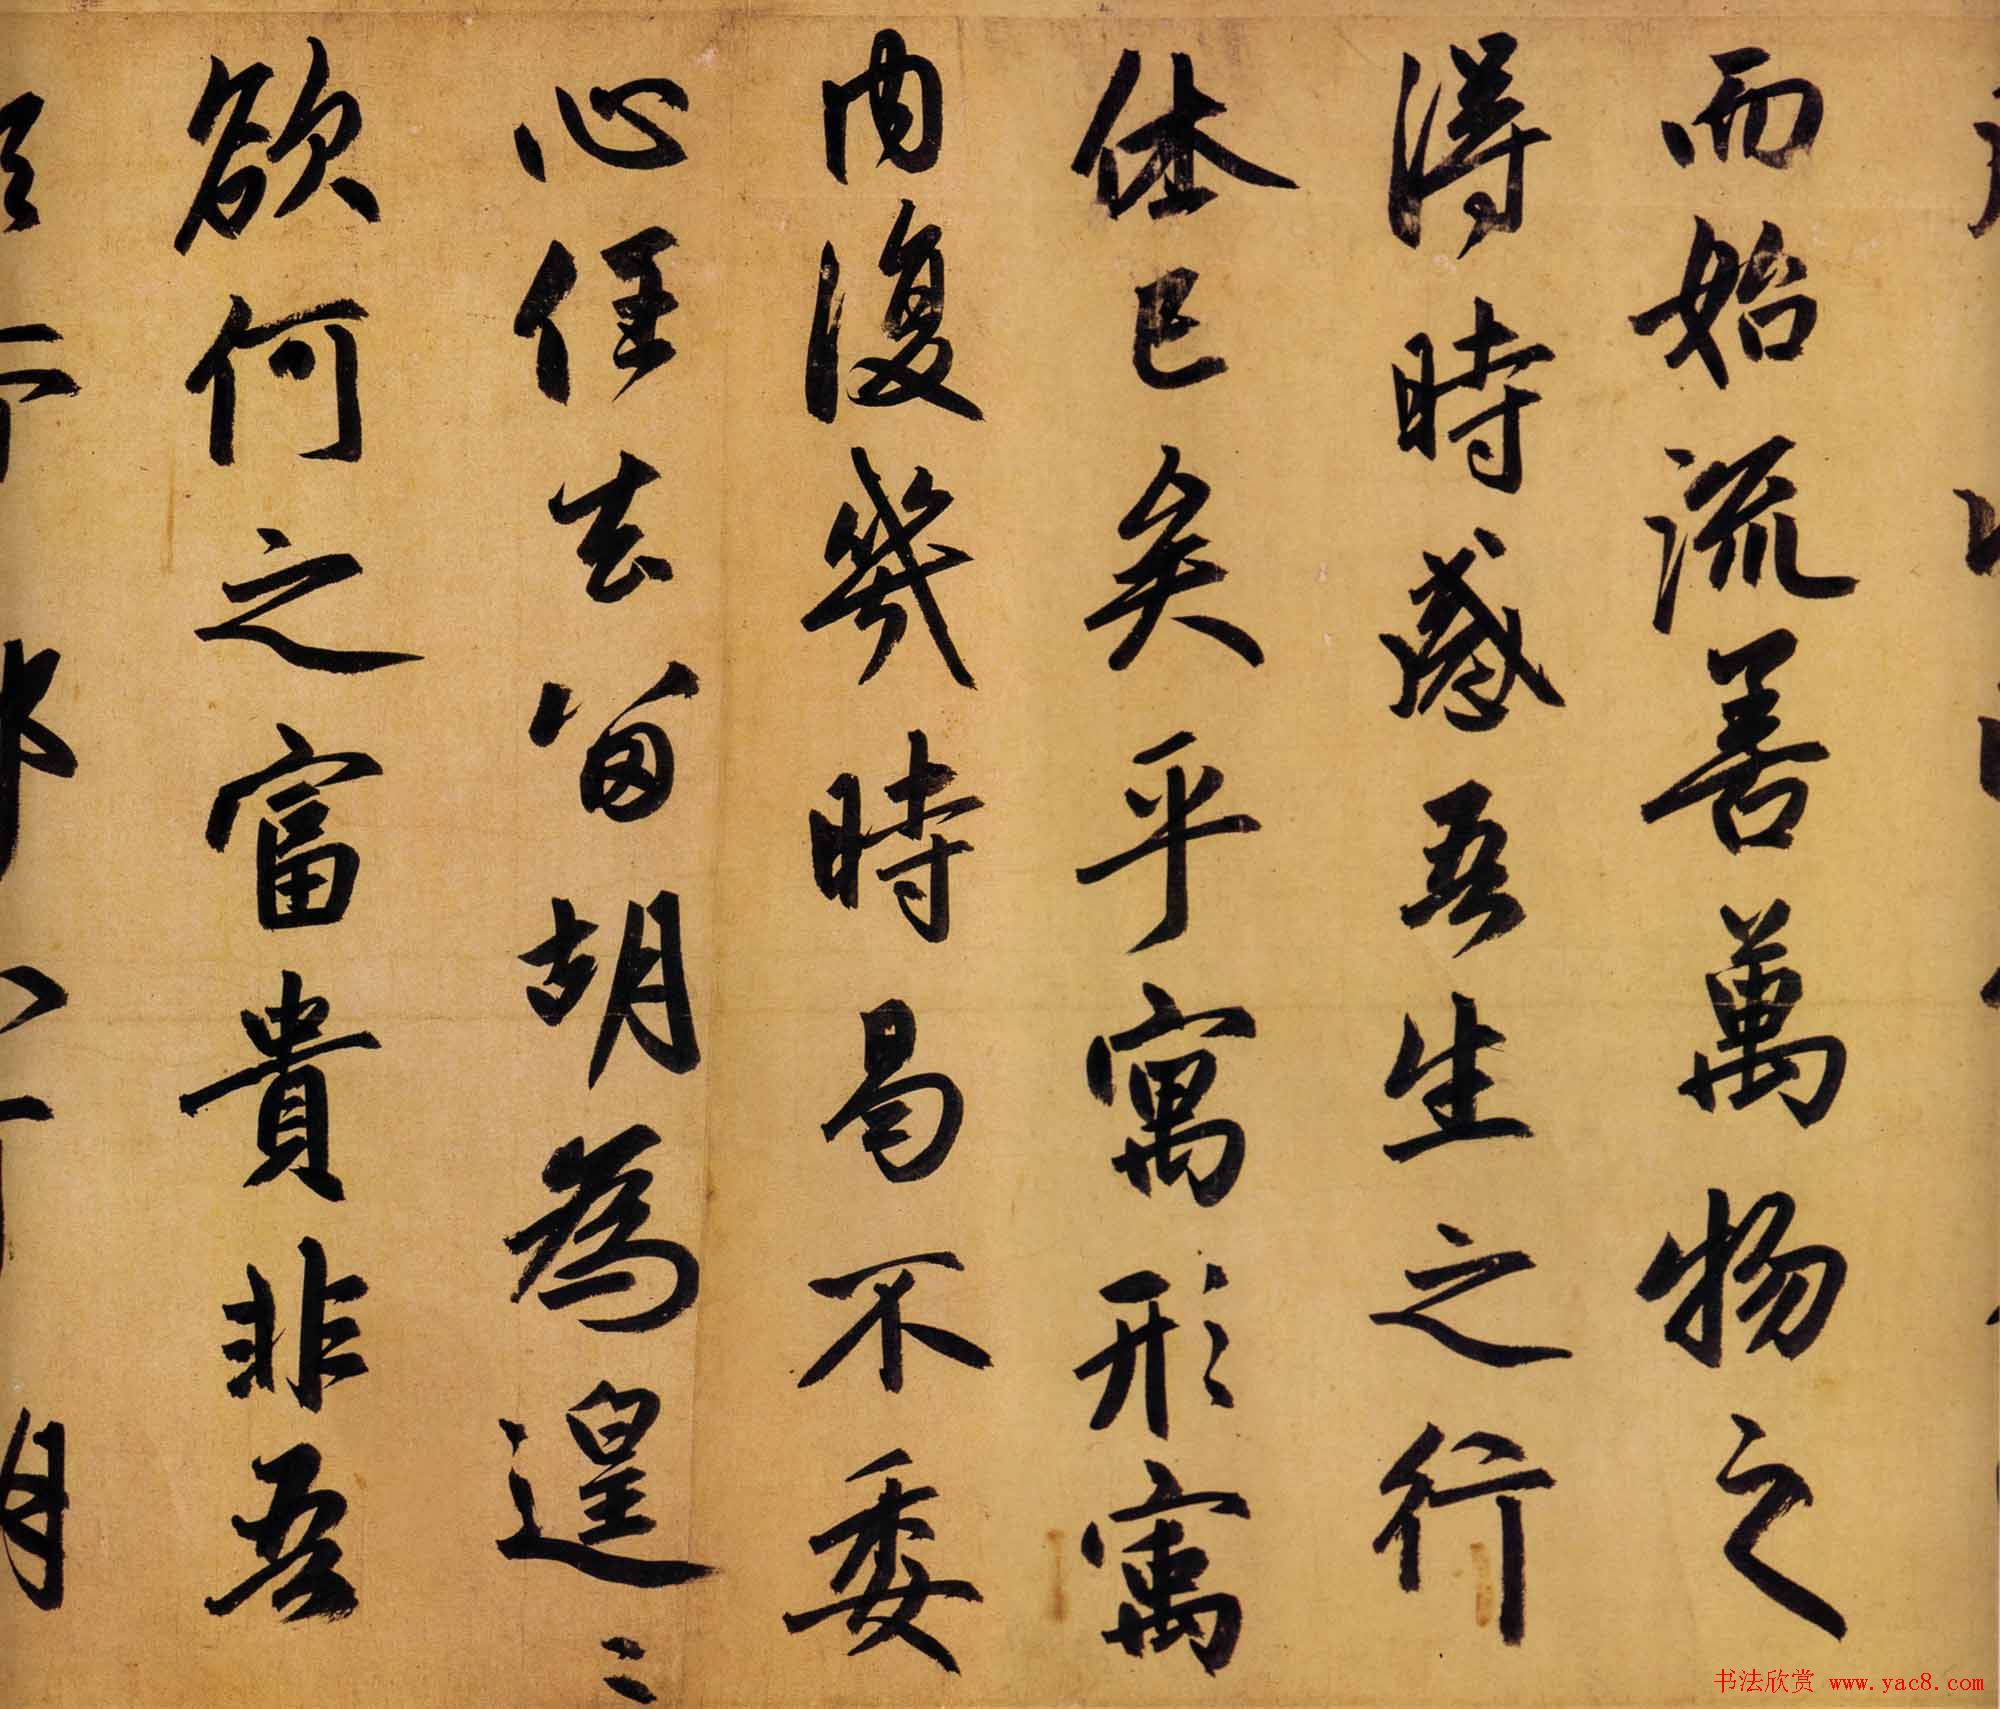 而始流善萬物之
得時感吾生之行
休已矣乎寓形寓
内復幾時曷不委
心任去留胡為遑〻
欲何之富貴非吾
书法欣赏 www.yac8.com